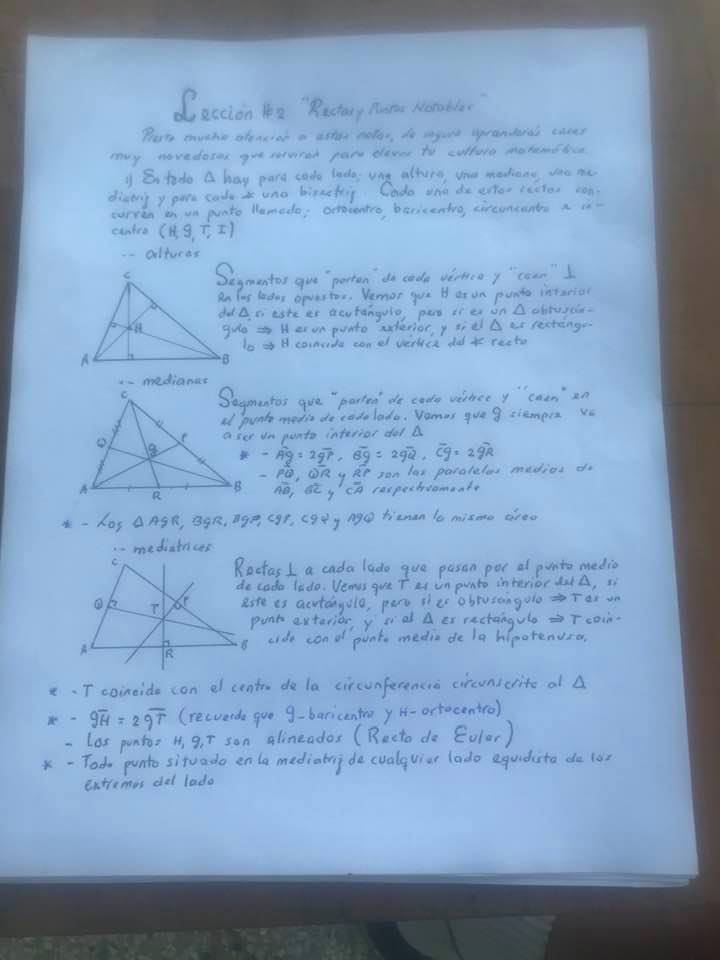 Lección #2 "Rectas y Puntos Notables"
Presta mucha atención a estas notas, de seguro aprenderás cosas
muy novedosas que servirán para elevar tu cultura matemática.
1) En todo Δ hay para cada lado; una altura, una mediana, una me-
diatriz y para cada ∢ una bisectriz. Cada una de estas rectas con-
curren en un punto llamado; ortocentro, baricentro, circuncentro e in-
centro (H, g, T, I)
·- alturas
C
H
A
B
Segmentos que "parten" de cada vértice y "caen" ⊥
en los lados opuestos. Vemos que H es un punto interior
del Δ, si este es acutángulo, pero si es un Δ obtusán-
gulo ⇒ H es un punto exterior, y si el Δ es rectángu-
lo ⇒ H coincide con el vértice del ∢ recto
·- medianas
C
Q
g
P
A
R
B
Segmentos que "parten" de cada vértice y "caen" en
el punto medio de cada lado. Vemos que g siempre va
a ser un punto interior del Δ
* - Ag = 2gP, Bg = 2gQ, Cg = 2gR
- PQ, QR y RP son las paralelas medias de
AB, BC y CA respectivamente
* - Los Δ AgR, BgR, BgP, CgP, CgQ y AgQ tienen la misma área
·- mediatrices
C
Q
T
P
A
R
B
Rectas ⊥ a cada lado que pasan por el punto medio
de cada lado. Vemos que T es un punto interior del Δ, si
este es acutángulo, pero si es obtusángulo ⇒ T es un
punto exterior, y si el Δ es rectángulo ⇒ T coin-
cide con el punto medio de la hipotenusa.
* - T coincide con el centro de la circunferencia circunscrita al Δ
* - gH = 2gT (recuerda que g-baricentro y H-ortocentro)
- Los puntos H, g, T son alineados (Recta de Euler)
* - Todo punto situado en la mediatriz de cualquier lado equidista de los
extremos del lado